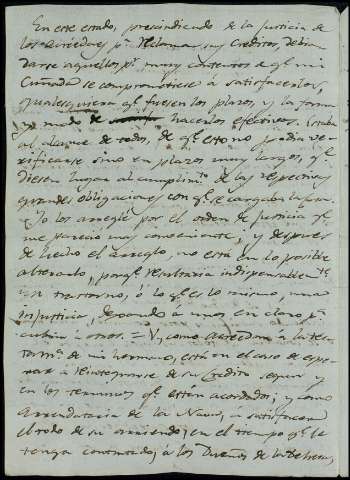 En este estado, prescindiendo de la justicia de
los acreedores pª reclamar sus creditos, debian
darse aquellos pr muy contentos de qe mi
Cuñada se comprometiese à satisfacerlos,
qualesquiera qe fuesen los plazos, y la forma
y modo de hacerlos efectivos. Estaba
al alcance de todos, de qe esto no podia ve-
rificarse sino en plazos muy largos, qe
diesen lugar al cumplimto de las respectivas
grandes obligaciones con qe se cargaba la
Yo los arreglé por el orden de justicia qe
me pareció mas conveniente; y despues
de hecho el arreglo, no está en lo posible
alterarlo, porqe resultaria indispensablemte
un trastorno, ó lo qe es lo mismo, una
injusticia, dejando à unos en claro pª
cubrir à otros. = V, como acreedora a la tes-
tamª de mi hermano, está en el caso de espe-
rar à reintegrarse de su Credito, segun y
en los terminos qe están acordados; y como
Arrendataria de la Nava, à satisfacer
el todo de su arriendo, en el tiempo qe le
tenga contratado, à los Dueños de la Dehesa,